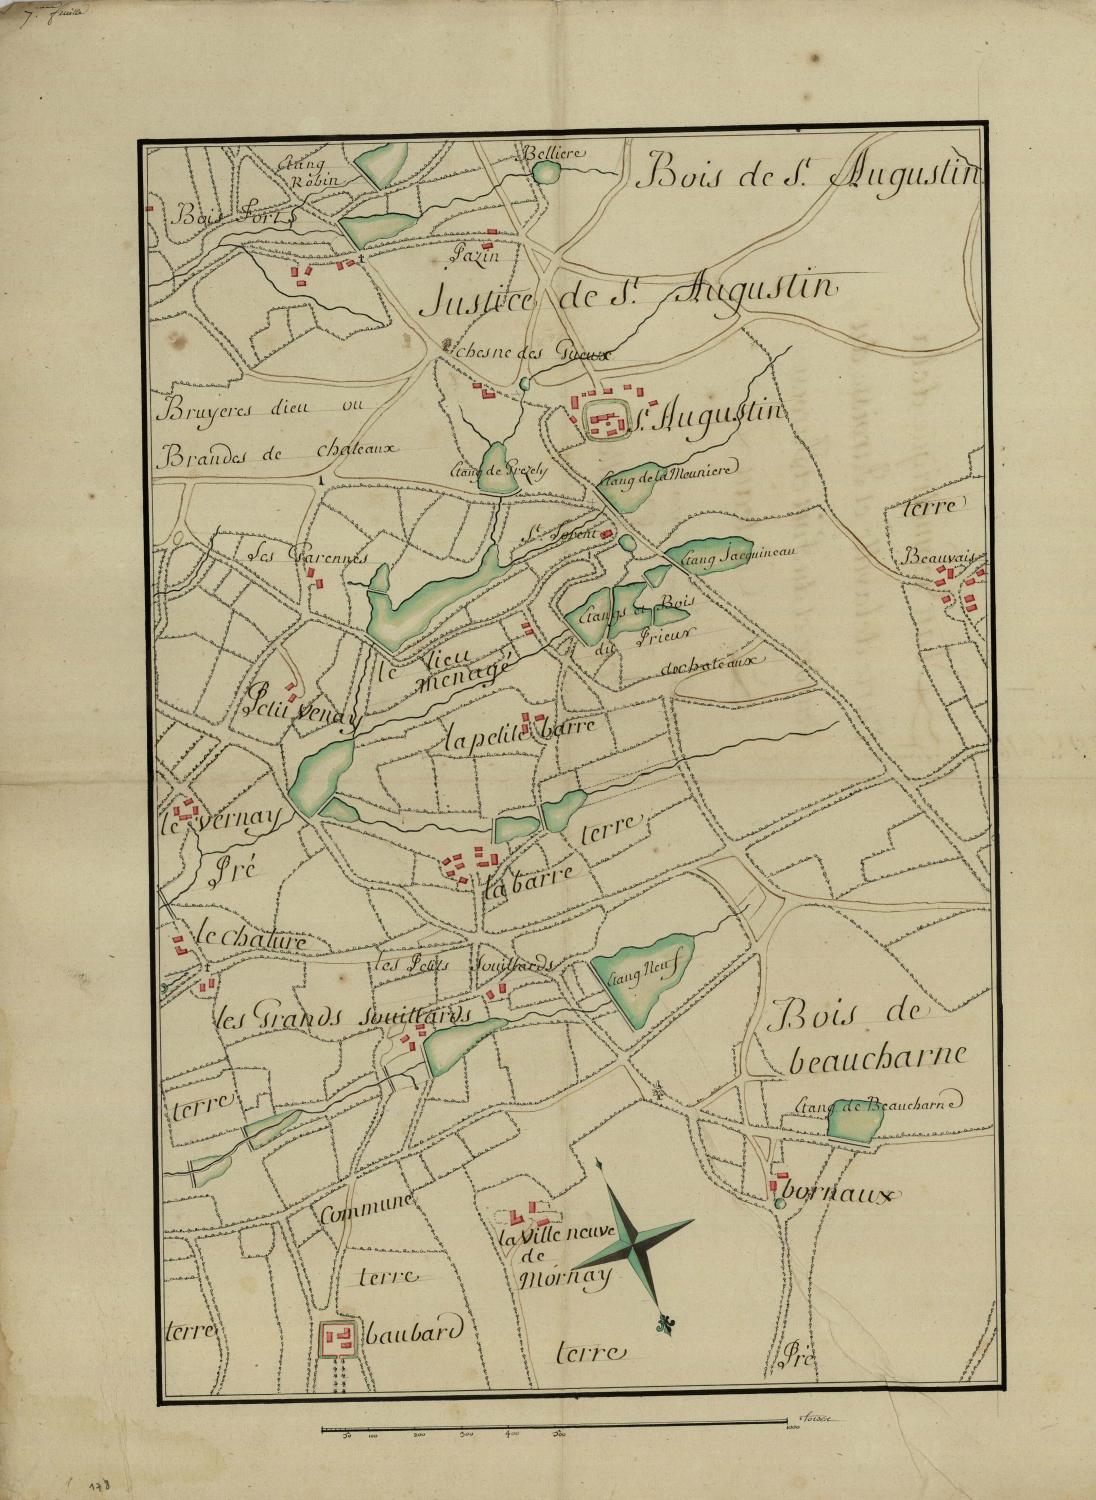 7.e feuille
Etang
Robin
Belliere
Bois de St. Augustin
Bois Forts
Pazin
Justice de St. Augustin
chesne des Gueux
Bruyeres dieu ou
Brandes de chateaux
St. Augustin
Etang de Grezely
Etang de la Meuniere
terre
les Garennes
Etang Jacquineau
Beauvais
Etangs et Bois
du Prieur
de chateaux
le lieu
menagé
Petit Venay
la petite barre
le Vernay
terre
Pré
la barre
le Chature
les Petits Souillards
Etang Neuf
les Grands Souillards
Bois de
beaucharne
terre
Etang de Beaucharne
bornaux
Commune
la Ville neuve
de
Mornay
terre
terre
baubard
terre
Pré
50 100 200 300 400 500 1000 Toises
178